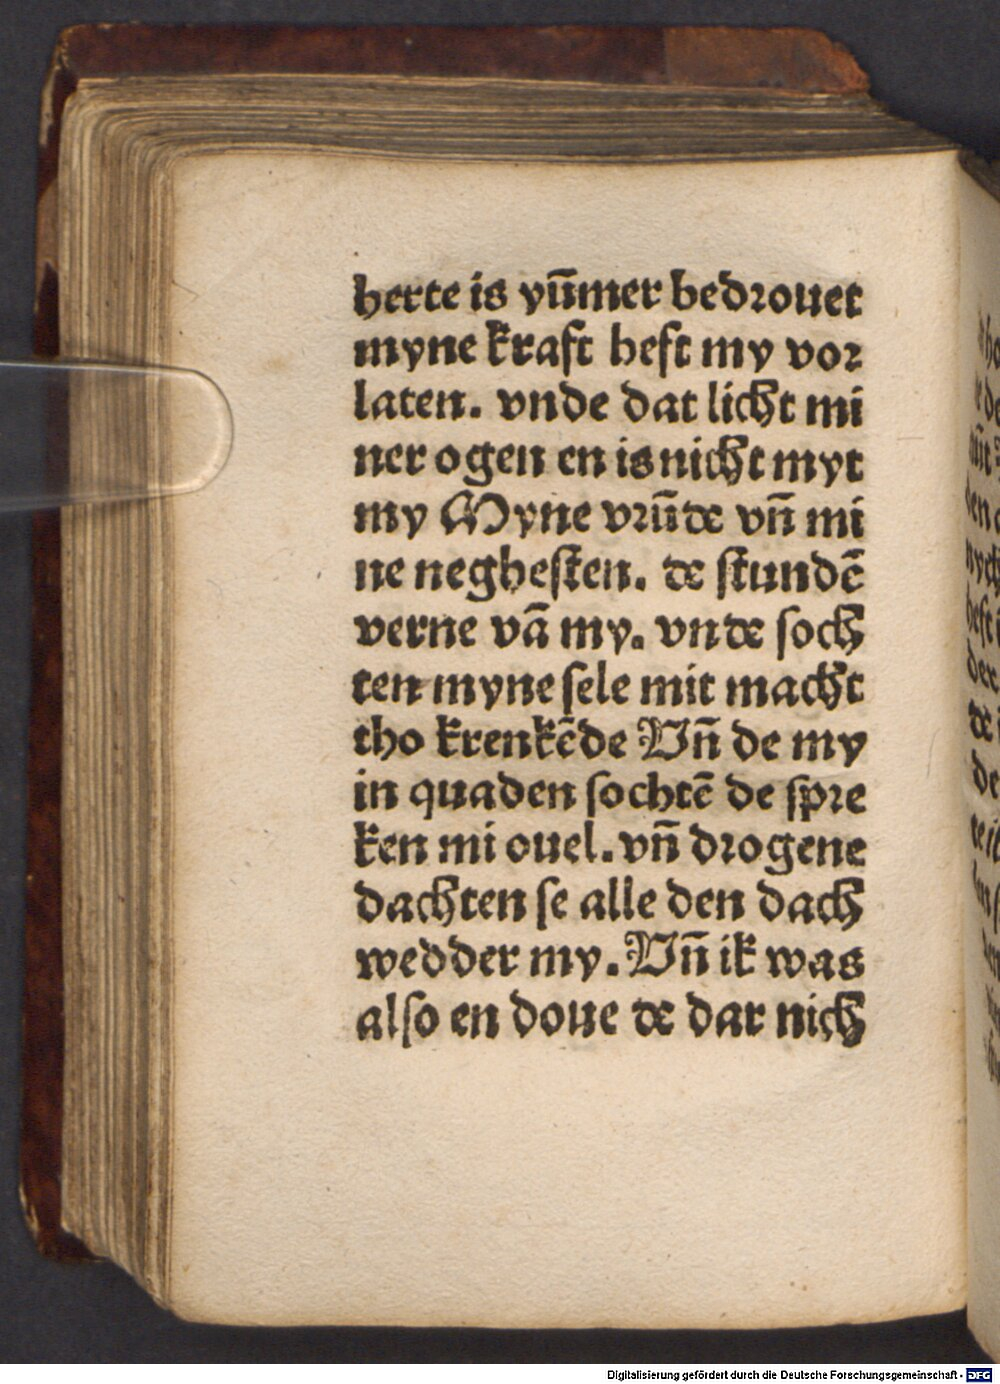 herte is yūmer bedrouet
myne kraft heft my vor
laten. vnde dat licht mi
ner ogen en is nicht myt
my Myne vrūde vn̄ mi
ne neghesten. de stundē
verne vā my. vnde soch
ten myne sele mit macht
tho krenkēde Vn̄ de my
in quaden sochtē de spre
ken mi ouel. vn̄ drogene
dachten se alle den dach
wedder my. Vn̄ ik was
also en doue de dar nich
Digitalisierung gefördert durch die Deutsche Forschungsgemeinschaft - DFG